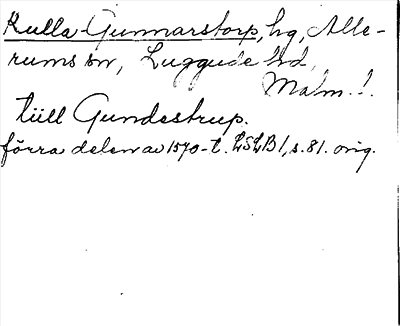 Kulla-Gunnarstorp, hg, Alle-
rums sn, Luggude hd,
Malm. l.
till Gundestrup.
förra delen av 1570-t. LSLB 1, s. 81. orig.